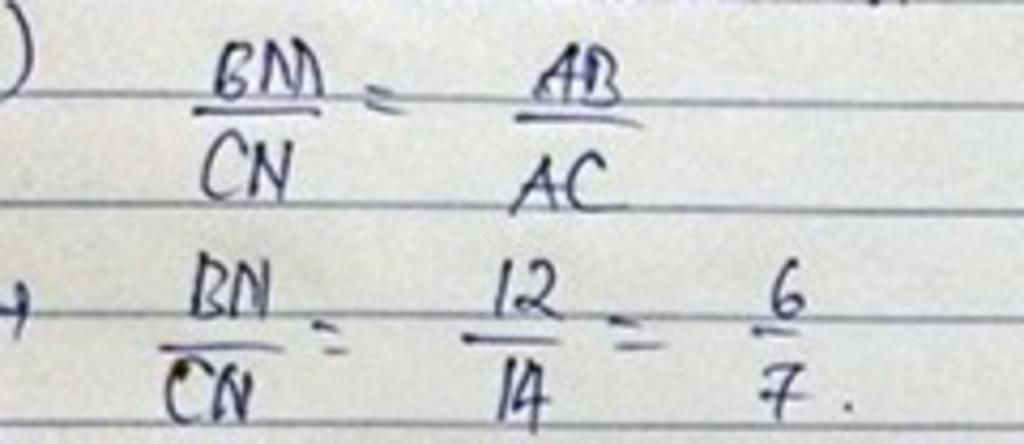 ) BM/CN = AB/AC
→ BN/CN = 12/14 = 6/7.